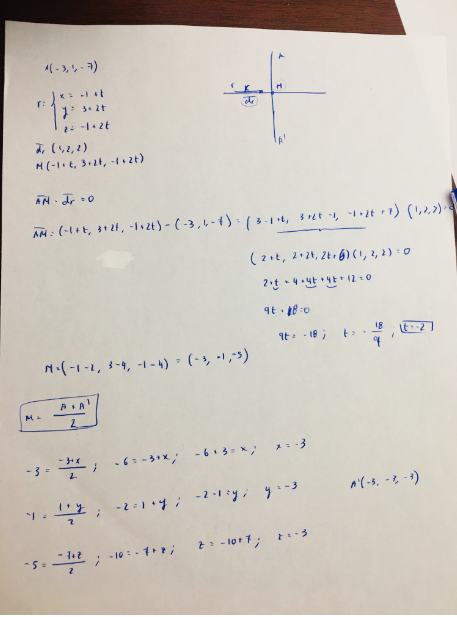 A(-3, 1, -7)
r: { x = -1+t
y = 3+2t
z = -1+2t
A
r
M
dr
A'
dr (1, 2, 2)
M (-1+t, 3+2t, -1+2t)
AM · dr = 0
AM: (-1+t, 3+2t, -1+2t) - (-3, 1, -7) = (3-1+t, 3+2t-1, -1+2t+7) (1, 2, 2) = 0
(2+t, 2+2t, 2t+6) (1, 2, 2) = 0
2+t+4+4t+4t+12=0
9t+18=0
9t = -18; t = -18/9; t=-2
M=(-1-2, 3-4, -1-4) = (-3, -1, -5)
M = A+A'/2
-3 = -3+x/2; -6=-3+x; -6+3=x; x=-3
-1 = 1+y/2; -2=1+y; -2-1=y; y=-3
-5 = -7+z/2; -10=-7+z; z=-10+7; z=-3
A'(-3, -3, -3)